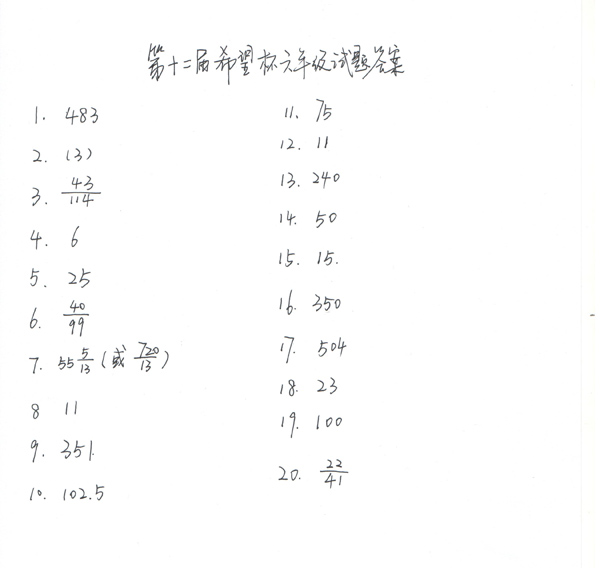 第十二届希望杯六年级试题答案
1. 483
2. (3)
3. 43/114
4. 6
5. 25
6. 40/99
7. 55 5/13 (或 720/13)
8 11
9. 351.
10. 102.5
11. 75
12. 11
13. 240
14. 50
15. 15.
16. 350
17. 504
18. 23
19. 100
20. 22/41